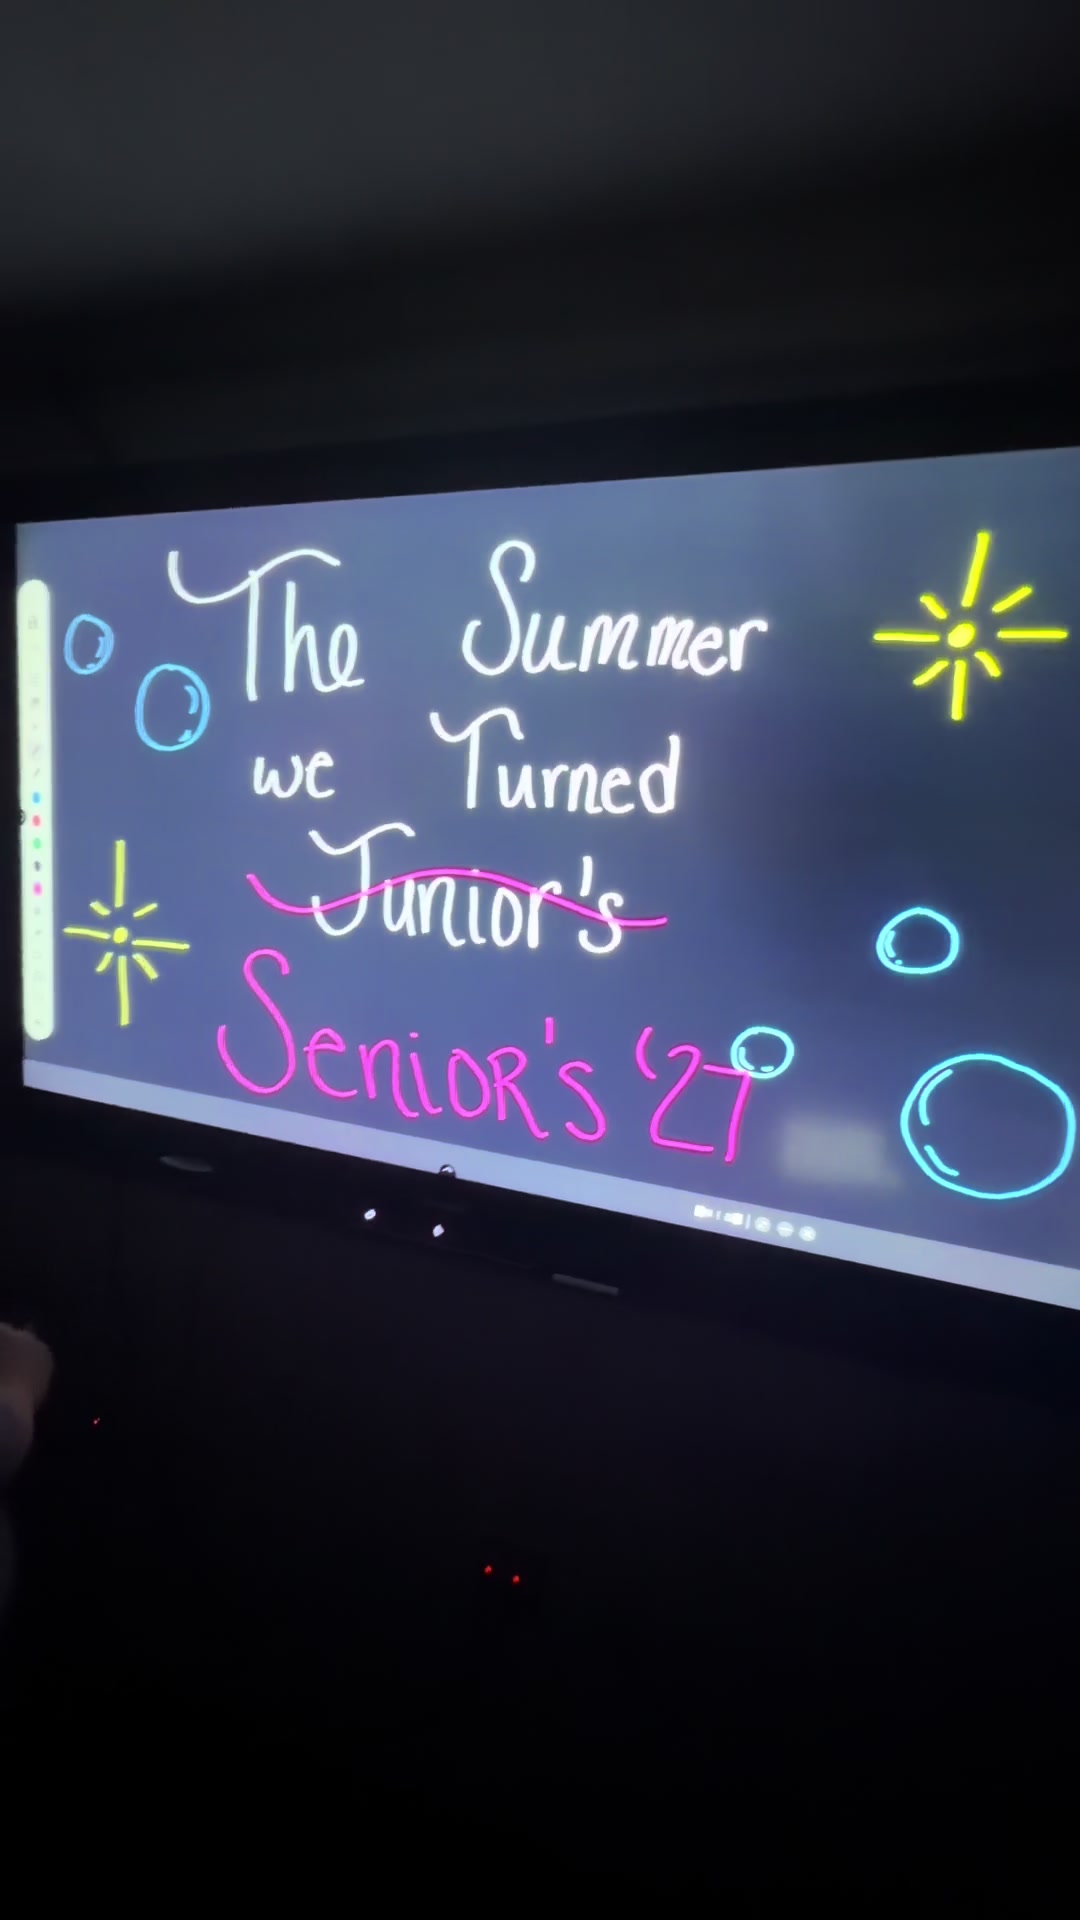 The Summer
we Turned
Junior's
SenioR's '27